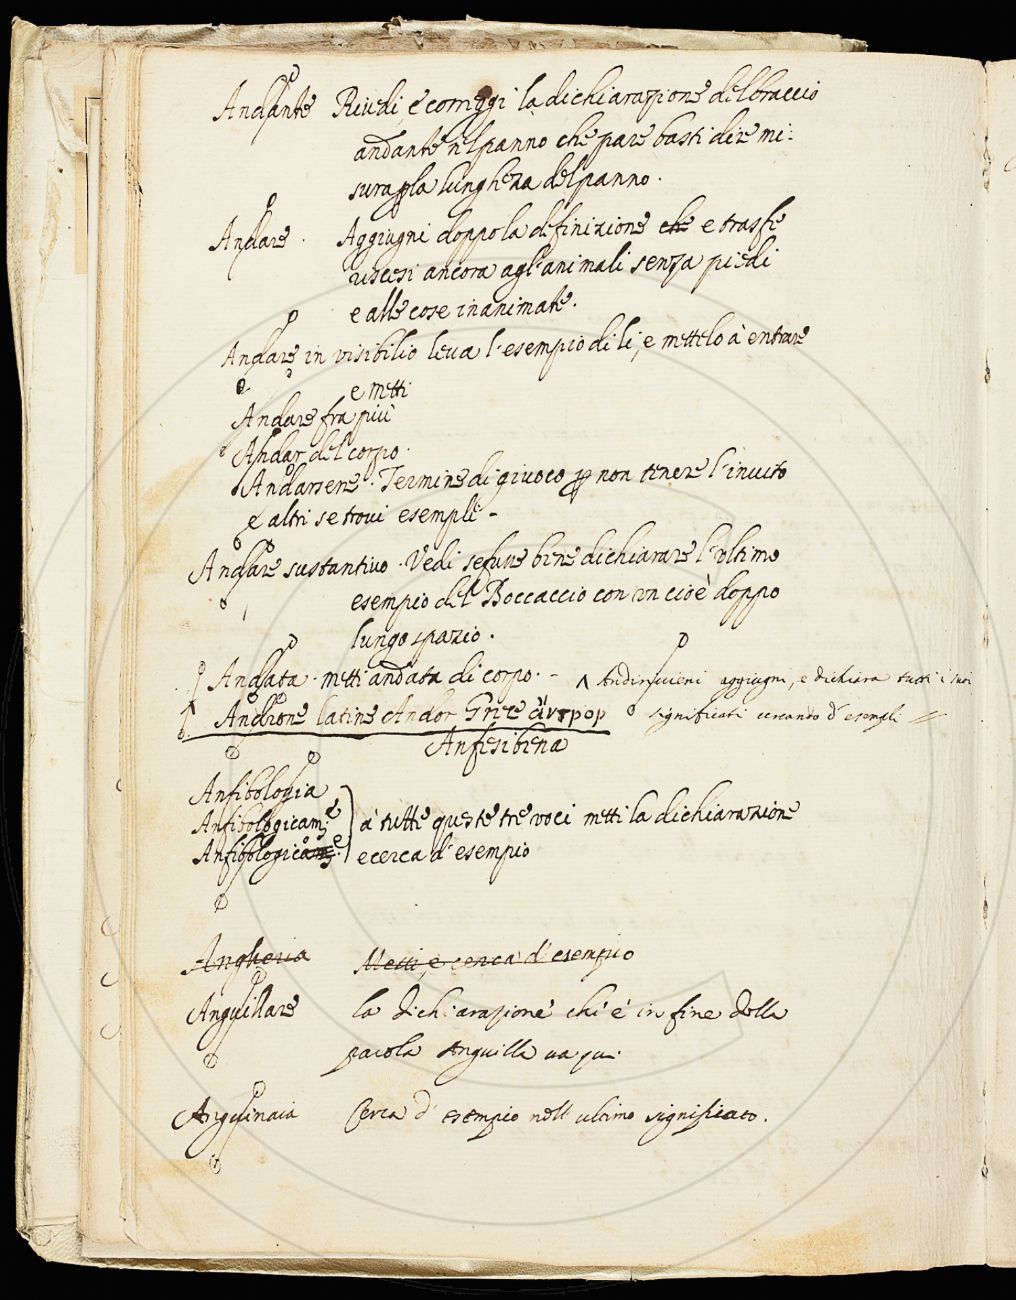 Andante Riuedi, e correggi la dichiarazione del braccio
andante nel panno che pare basti dire mi-
sura pla lungheza del panno.
Andare. Aggiugni doppo la definizione che e trasfe
riscesi ancora agl'animali senza piedi
e alle cose inanimate.
Andare in visibilio leua l'esempio di li, e mettelo à entrare
e metti
Andare fra più
Andar del corpo.
Andarsene. Termine di giuoco p non tenere l'inuito
e altri se troui esempli -
Andare sustantiuo. Vedi se fusse bene dichiarare l'vltimo
esempio del Boccaccio con vn cioè doppo
lungo spazio.
Andata. metti andata di corpo. - ^ Andirivieni aggiugni, e dichiara tutti i suoi
Androne latine Andor Gre
significati cercando d'esempli
Anfesibena
Anfibologia
Anfibologicam.e à tutte queste tre voci metti la dichiarazione
Anfibologico e cerca d'esempio
Angheria Metti, e cerca d'esempio
Anguillare la dichiarazione ch'è in fine della
parola Anguilla ua qui
Anguinaia Cerca d'esempio nell'ultimo significato.